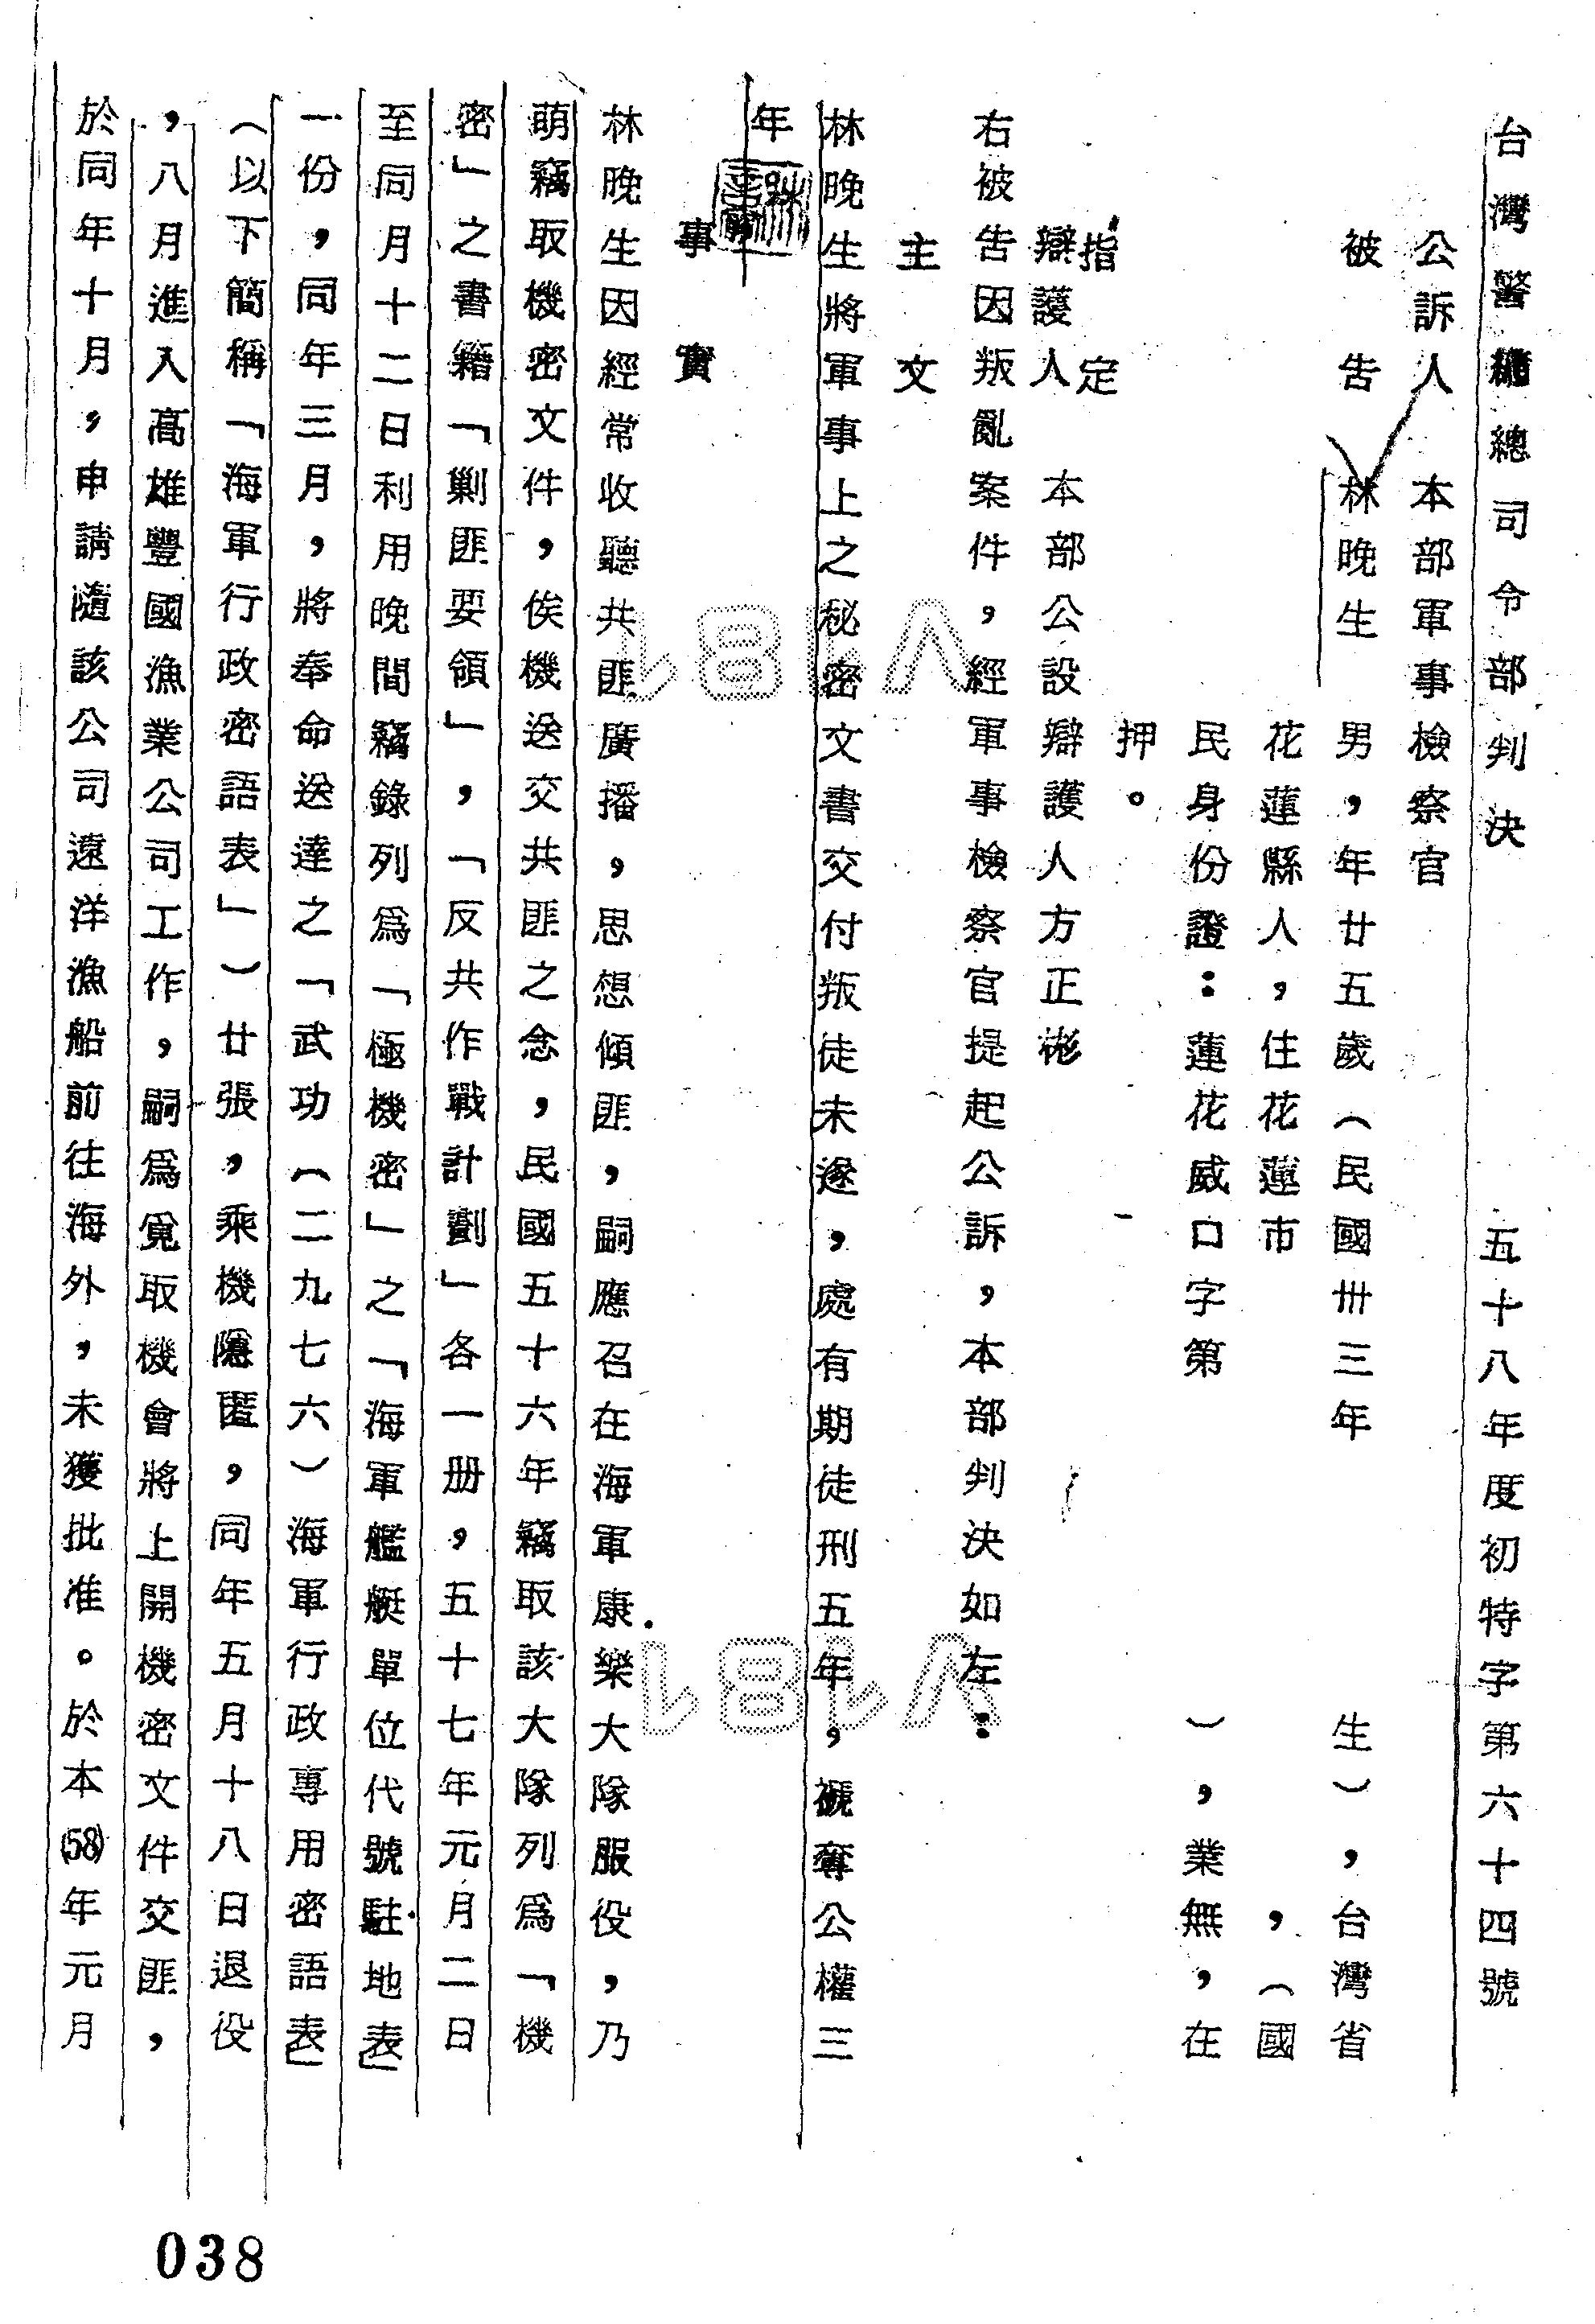 台灣警備總司令部判決　五十八年度初特字第六十四號
公訴人　本部軍事檢察官
被告　林晚生　男，年廿五歲（民國卅三年　生），台灣省
花蓮縣人，住花蓮市　，（國
民身份證：蓮花威口字第　），業無，在
押。
指定
辯護人　本部公設辯護人方正彬
右被告因叛亂案件，經軍事檢察官提起公訴，本部判決如左：
主文
林晚生將軍事上之秘密文書交付叛徒未遂，處有期徒刑五年，褫奪公權三
年
事實
林晚生因經常收聽共匪廣播，思想傾匪，嗣應召在海軍康樂大隊服役，乃
萌竊取機密文件，俟機送交共匪之念，民國五十六年竊取該大隊列為「機
密」之書籍「剿匪要領」，「反共作戰計劃」各一册，五十七年元月二日
至同月十二日利用晚間竊錄列為「極機密」之「海軍艦艇單位代號駐地表」
一份，同年三月，將奉命送達之「武功（二九七六）海軍行政專用密語表」
（以下簡稱「海軍行政密語表」）廿張，乘機隱匿，同年五月十八日退役
，八月進入高雄豐國漁業公司工作，嗣為覓取機會將上開機密文件交匪，
於同年十月，申請隨該公司遠洋漁船前往海外，未獲批准。於本(58)年元月
038
V181
V181